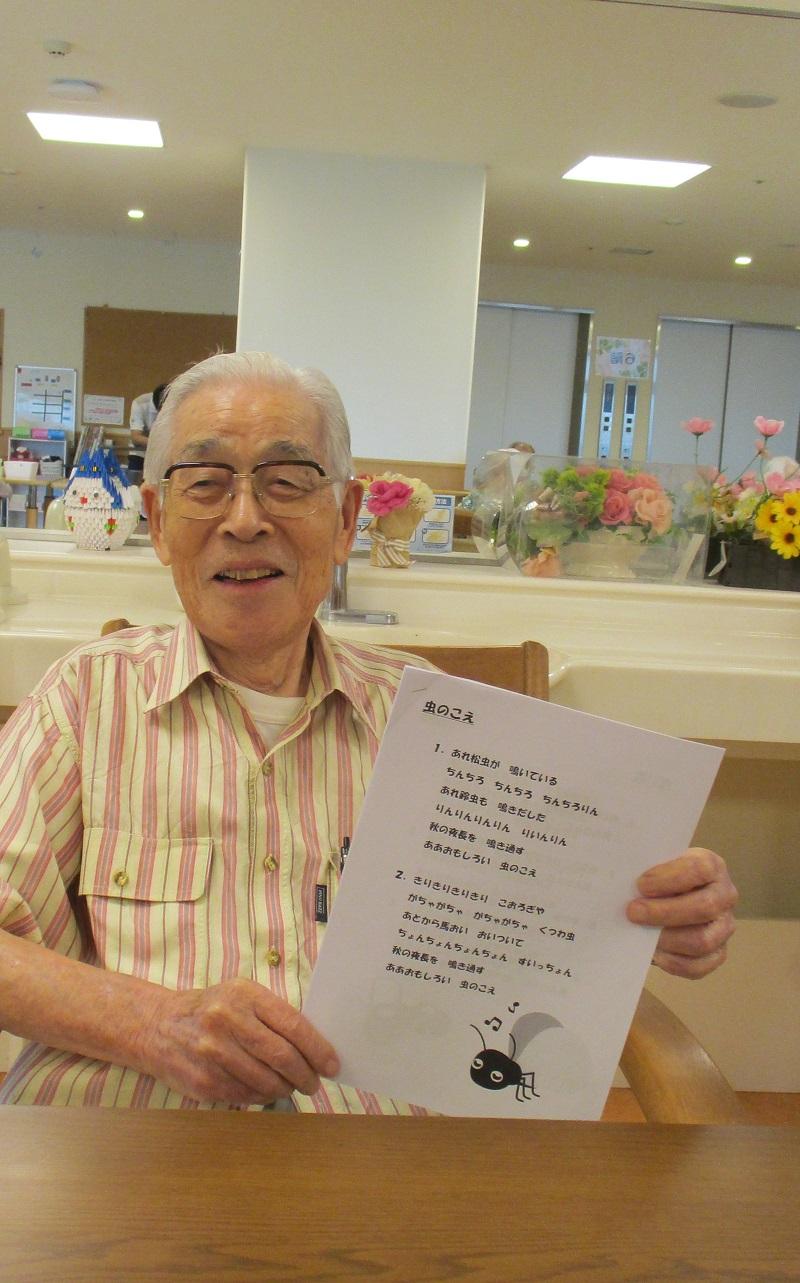 虫のこえ
1. あれ松虫が 鳴いている
ちんちろ ちんちろ ちんちろりん
あれ鈴虫も 鳴きだした
りんりんりんりん りいんりん
秋の夜長を 鳴き通す
ああおもしろい 虫のこえ
2. きりきりきりきり こおろぎや
がちゃがちゃ がちゃがちゃ くつわ虫
あとから馬おい おいついて
ちょんちょんちょんちょん すいっちょん
秋の夜長を 鳴き通す
ああおもしろい 虫のこえ